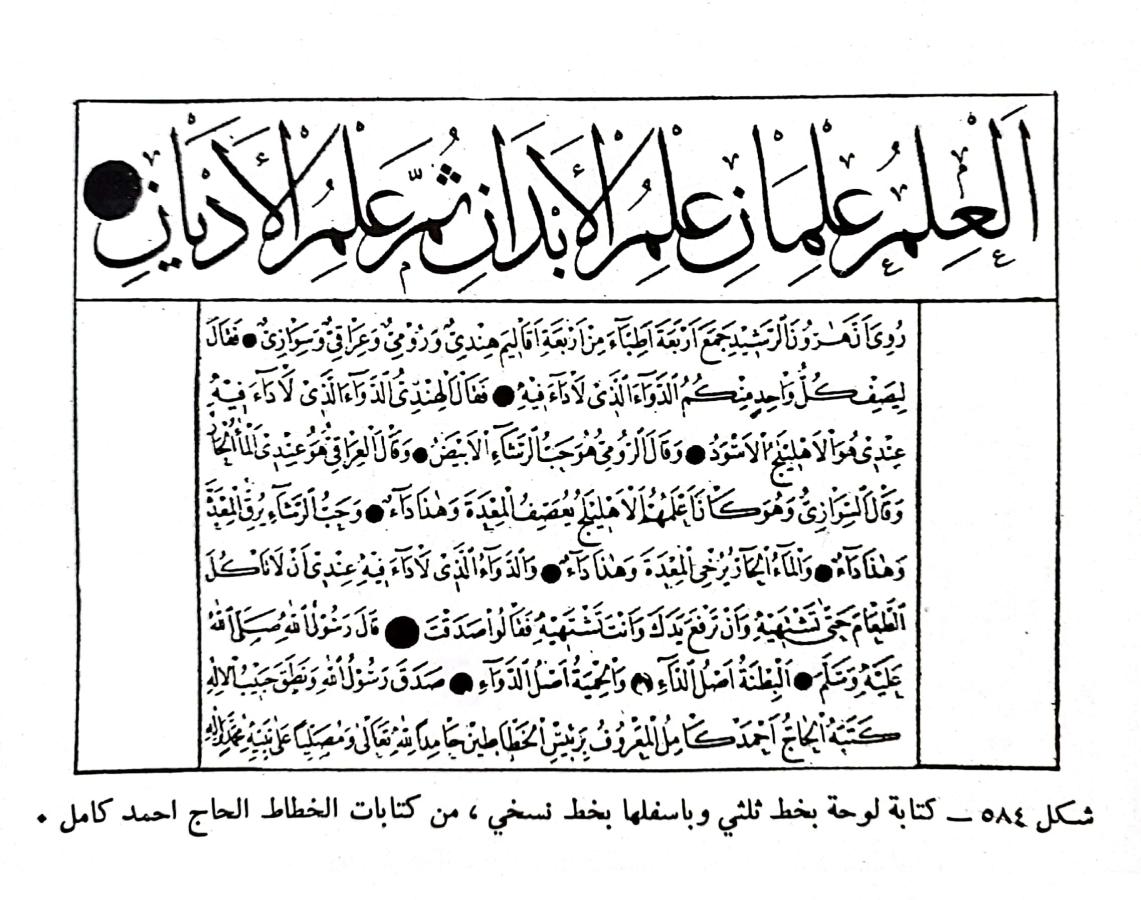 اَلْعِلْمُ عِلْمَانِ عِلْمُ الْأَبْدَانِ ثُمَّ عِلْمُ الْأَدْيَانِ
رُوِىَ اَنَّ هٰرُونَ الرَّشِيدِ جَمَعَ اَرْبَعَةَ اَطِبَّاءَ مِنْ اَرْبَعَةِ اَقَالِيمَ هِنْدِىٌّ وَرُومِىٌّ وَعِرَاقِىٌّ وَسِوَازِىٌّ ● فَقَالَ
لِيَصِفْ كُلُّ وَاحِدٍ مِنْكُمُ الدَّوَاءَ الَّذِى لَادَاءَ فِيهِ ● فَقَالَ الْهِنْدِىُّ الدَّوَاءَ الَّذِى لَادَاءَ فِيهِ
عِنْدِى هُوَ الْاَهْلِيلَجُ الْاَسْوَدُ ● وَقَالَ الرُّومِىُّ هُوَ حَبُّ الرَّشَاءِ الْاَبْيَضُ ● وَقَالَ الْعِرَاقِىُّ هُوَ عِنْدِى الْمَاءُ الْحَارُّ
وَقَالَ السِّوَازِىُّ وَهُوَ كَانَ اَعْلَمَهُمُ الْاَهْلِيلَجُ يُعَصِفُ الْمِعْدَةَ وَهٰذَا دَاءٌ ● وَحَبُّ الرَّشَاءِ يُرِقُّ الْمِعْدَةَ
وَهٰذَا دَاءٌ ● وَالْمَاءُ الْحَارُّ يُرْخِى الْمِعْدَةَ وَهٰذَا دَاءٌ ● وَالدَّوَاءُ الَّذِى لَادَاءَ فِيهِ عِنْدِى اَنْ لَا تَأْكُلَ
الطَّعَامَ حَتّٰى تَشْتَهِيَهُ وَاَنْ تَرْفَعَ يَدَكَ وَاَنْتَ تَشْتَهِيهِ فَقَالُوا صَدَقْتَ ● قَالَ رَسُولُ اللّٰهِ صَلَّى اللّٰهُ
عَلَيْهِ وَسَلَّمَ ● اَلْبِطْنَةُ اَصْلُ الدَّاءِ ● وَالْحِمْيَةُ اَصْلُ الدَّوَاءِ ● صَدَقَ رَسُولُ اللّٰهِ وَنَطَقَ حَبِيبُ الْاِلٰهِ
كَتَبَهُ الْحَاجُّ اَحْمَدْ كَامِلُ الْمَعْرُوفُ بِرَئِيسِ الْخَطَّاطِينَ حَامِدًا لِلّٰهِ تَعَالٰى وَمُصَلِّيًا عَلٰى نَبِيِّهِ مُحَمَّدٍ وَاٰلِهِ
شكل ٥٨٤ ـ كتابة لوحة بخط ثلثي وباسفلها بخط نسخي ، من كتابات الخطاط الحاج احمد كامل ٠